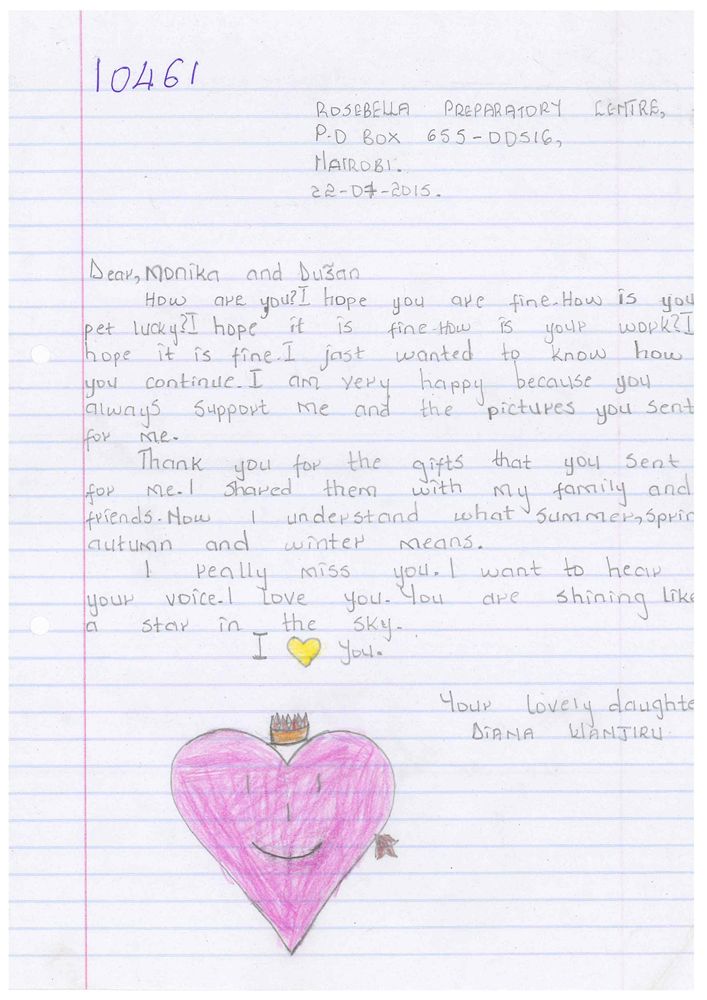 10461
ROSEBELLA PREPARATORY CENTRE,
P.O BOX 655-00516,
NAIROBI.
22-07-2015.
Dear, Monika and Dušan
How are you? I hope you are fine. How is you
pet lucky? I hope it is fine. How is your work? I
hope it is fine. I jast wanted to know how
you continue. I am very happy because you
always support me and the pictures you sent
for me.
Thank you for the gifts that you sent
for me. I shared them with my family and
friends. Now I understand what summer, sprin
autumn and winter means.
I really miss you. I want to hear
your voice. I love you. You are shining like
a star in the sky.
I 💛 you.
Your lovely daughte
DIANA WANJIRU